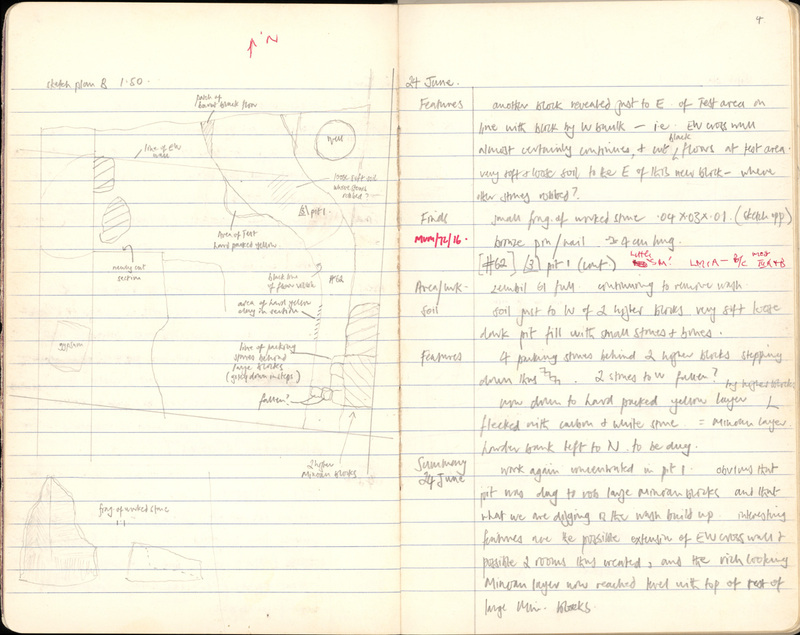 ↑ N
sketch plan B 1:50.
patch of
burnt black floor
line of EW
wall
Well
loose soft soil
where stones
robbed?
pit 1.
Area of Test
hard packed yellow.
newly cut
section
black line
of floor
#62
area of hard yellow
clay in section
gypsum
line of packing
stones behind
large blocks
(going down in steps)
fallen?
2 higher
Minoan Blocks
frag of worked stone
1:1
4
24 June.
Features another block revealed just to E of Test area on
line with block by W baulk – i.e. EW cross wall
black
almost certainly continues, & cut floors at test area.
very soft & loose soil to the E of this new block – where
other stones robbed?
Finds small frag. of worked stone .04 x .03 x .01. (sketch opp)
Mum/72/16. bronze pin/nail 4 cm long.
[#62] (3) pit 1 (cont) little 'SM' LMIA – B/C most
Area/wk. zembil 61 full. continuing to remove wash
Soil soil just to W of 2 higher blocks very soft loose
dark pit fill with small stones & bones.
Features 4 packing stones behind 2 higher blocks stepping
down thus. 2 stones to W fallen?
by higher blocks
now down to hard packed yellow layer
flecked with carbon & white stone = Minoan layer
harder bank left to N to be dug.
Summary work again concentrated in pit 1. obvious that
24 June pit was dug to rob large Minoan blocks and that
what we are digging is the wash build up. interesting
features are the possible extension of EW cross wall &
possible 2 rooms thus created, and the rich looking
Minoan layer now reached level with top of rest of
large Min. blocks.